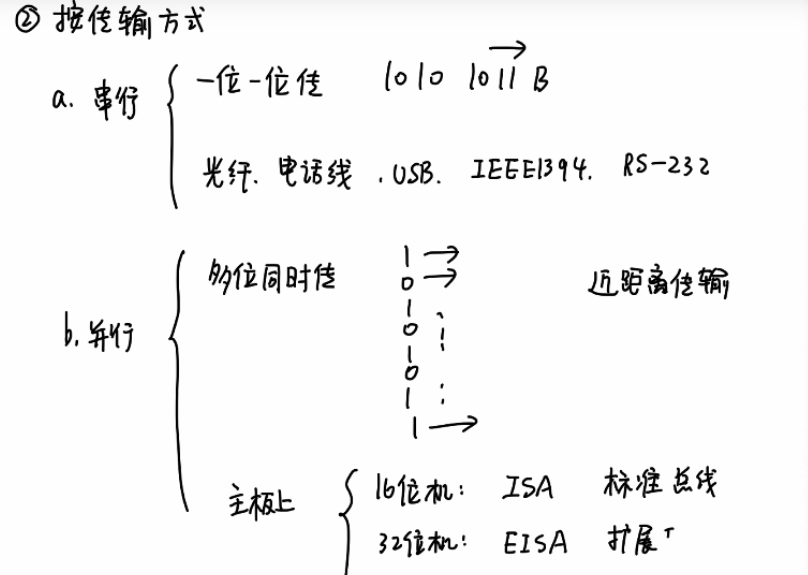 ② 按传输方式
a. 串行
一位一位传 1010 1011 B
光纤、电话线、USB、IEEE1394、RS-232
b. 并行
多位同时传 近距离传输
1
0
1
0
1
0
1
1
主板上
16位机: ISA 标准总线
32位机: EISA 扩展